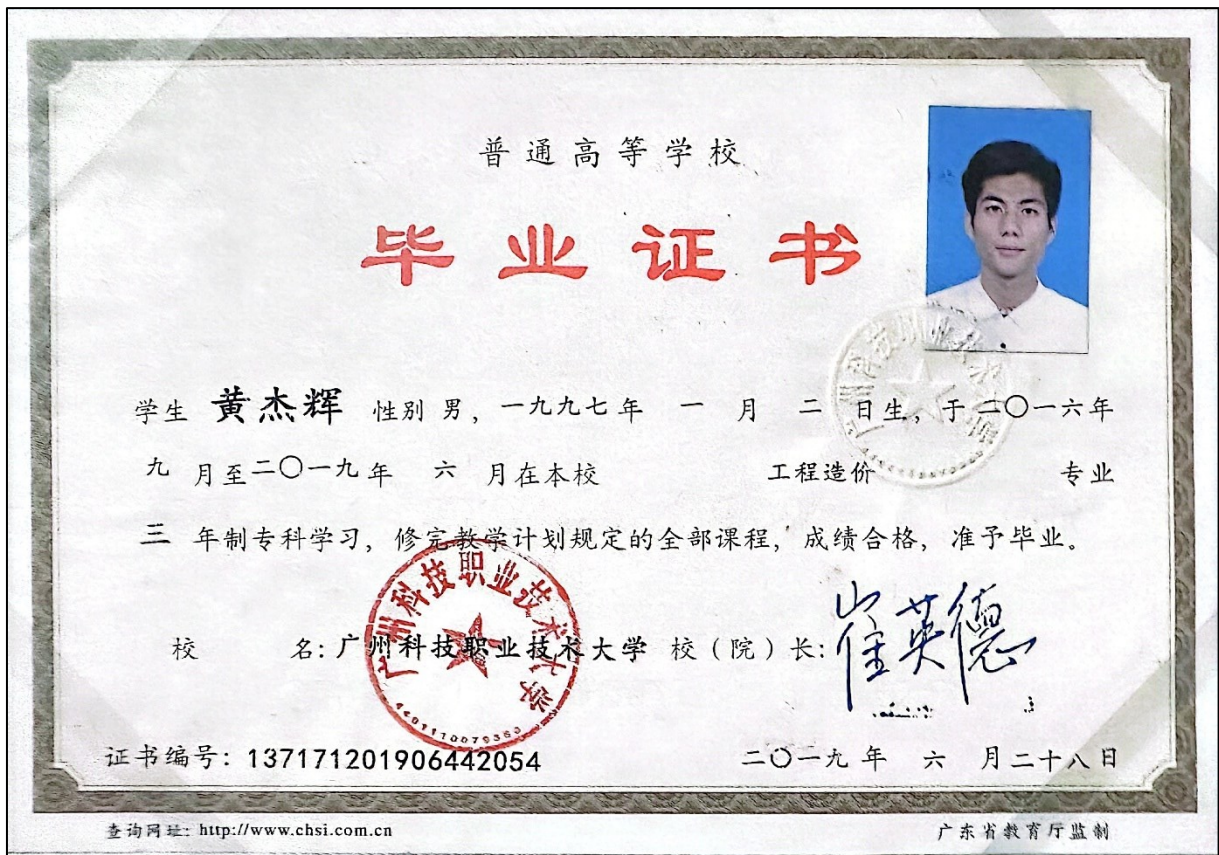 普通高等学校
毕业证书
学生 黄杰辉 性别 男，一九九七年 一 月 二 日生，于二〇一六年
九 月至二〇一九年 六 月在本校 工程造价 专业
三 年制专科学习，修完教学计划规定的全部课程，成绩合格，准予毕业。
广州科技职业技术大学
校 名：广州科技职业技术大学 校（院）长：崔英德
4401110079363
证书编号：137171201906442054 二〇一九年 六 月二十八日
查询网址：http://www.chsi.com.cn 广东省教育厅监制